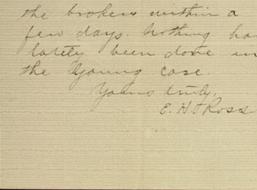 the brokers within a
few days. Nothing ha
lately been done in
the Young case.
Yours truly,
E. H. Ross